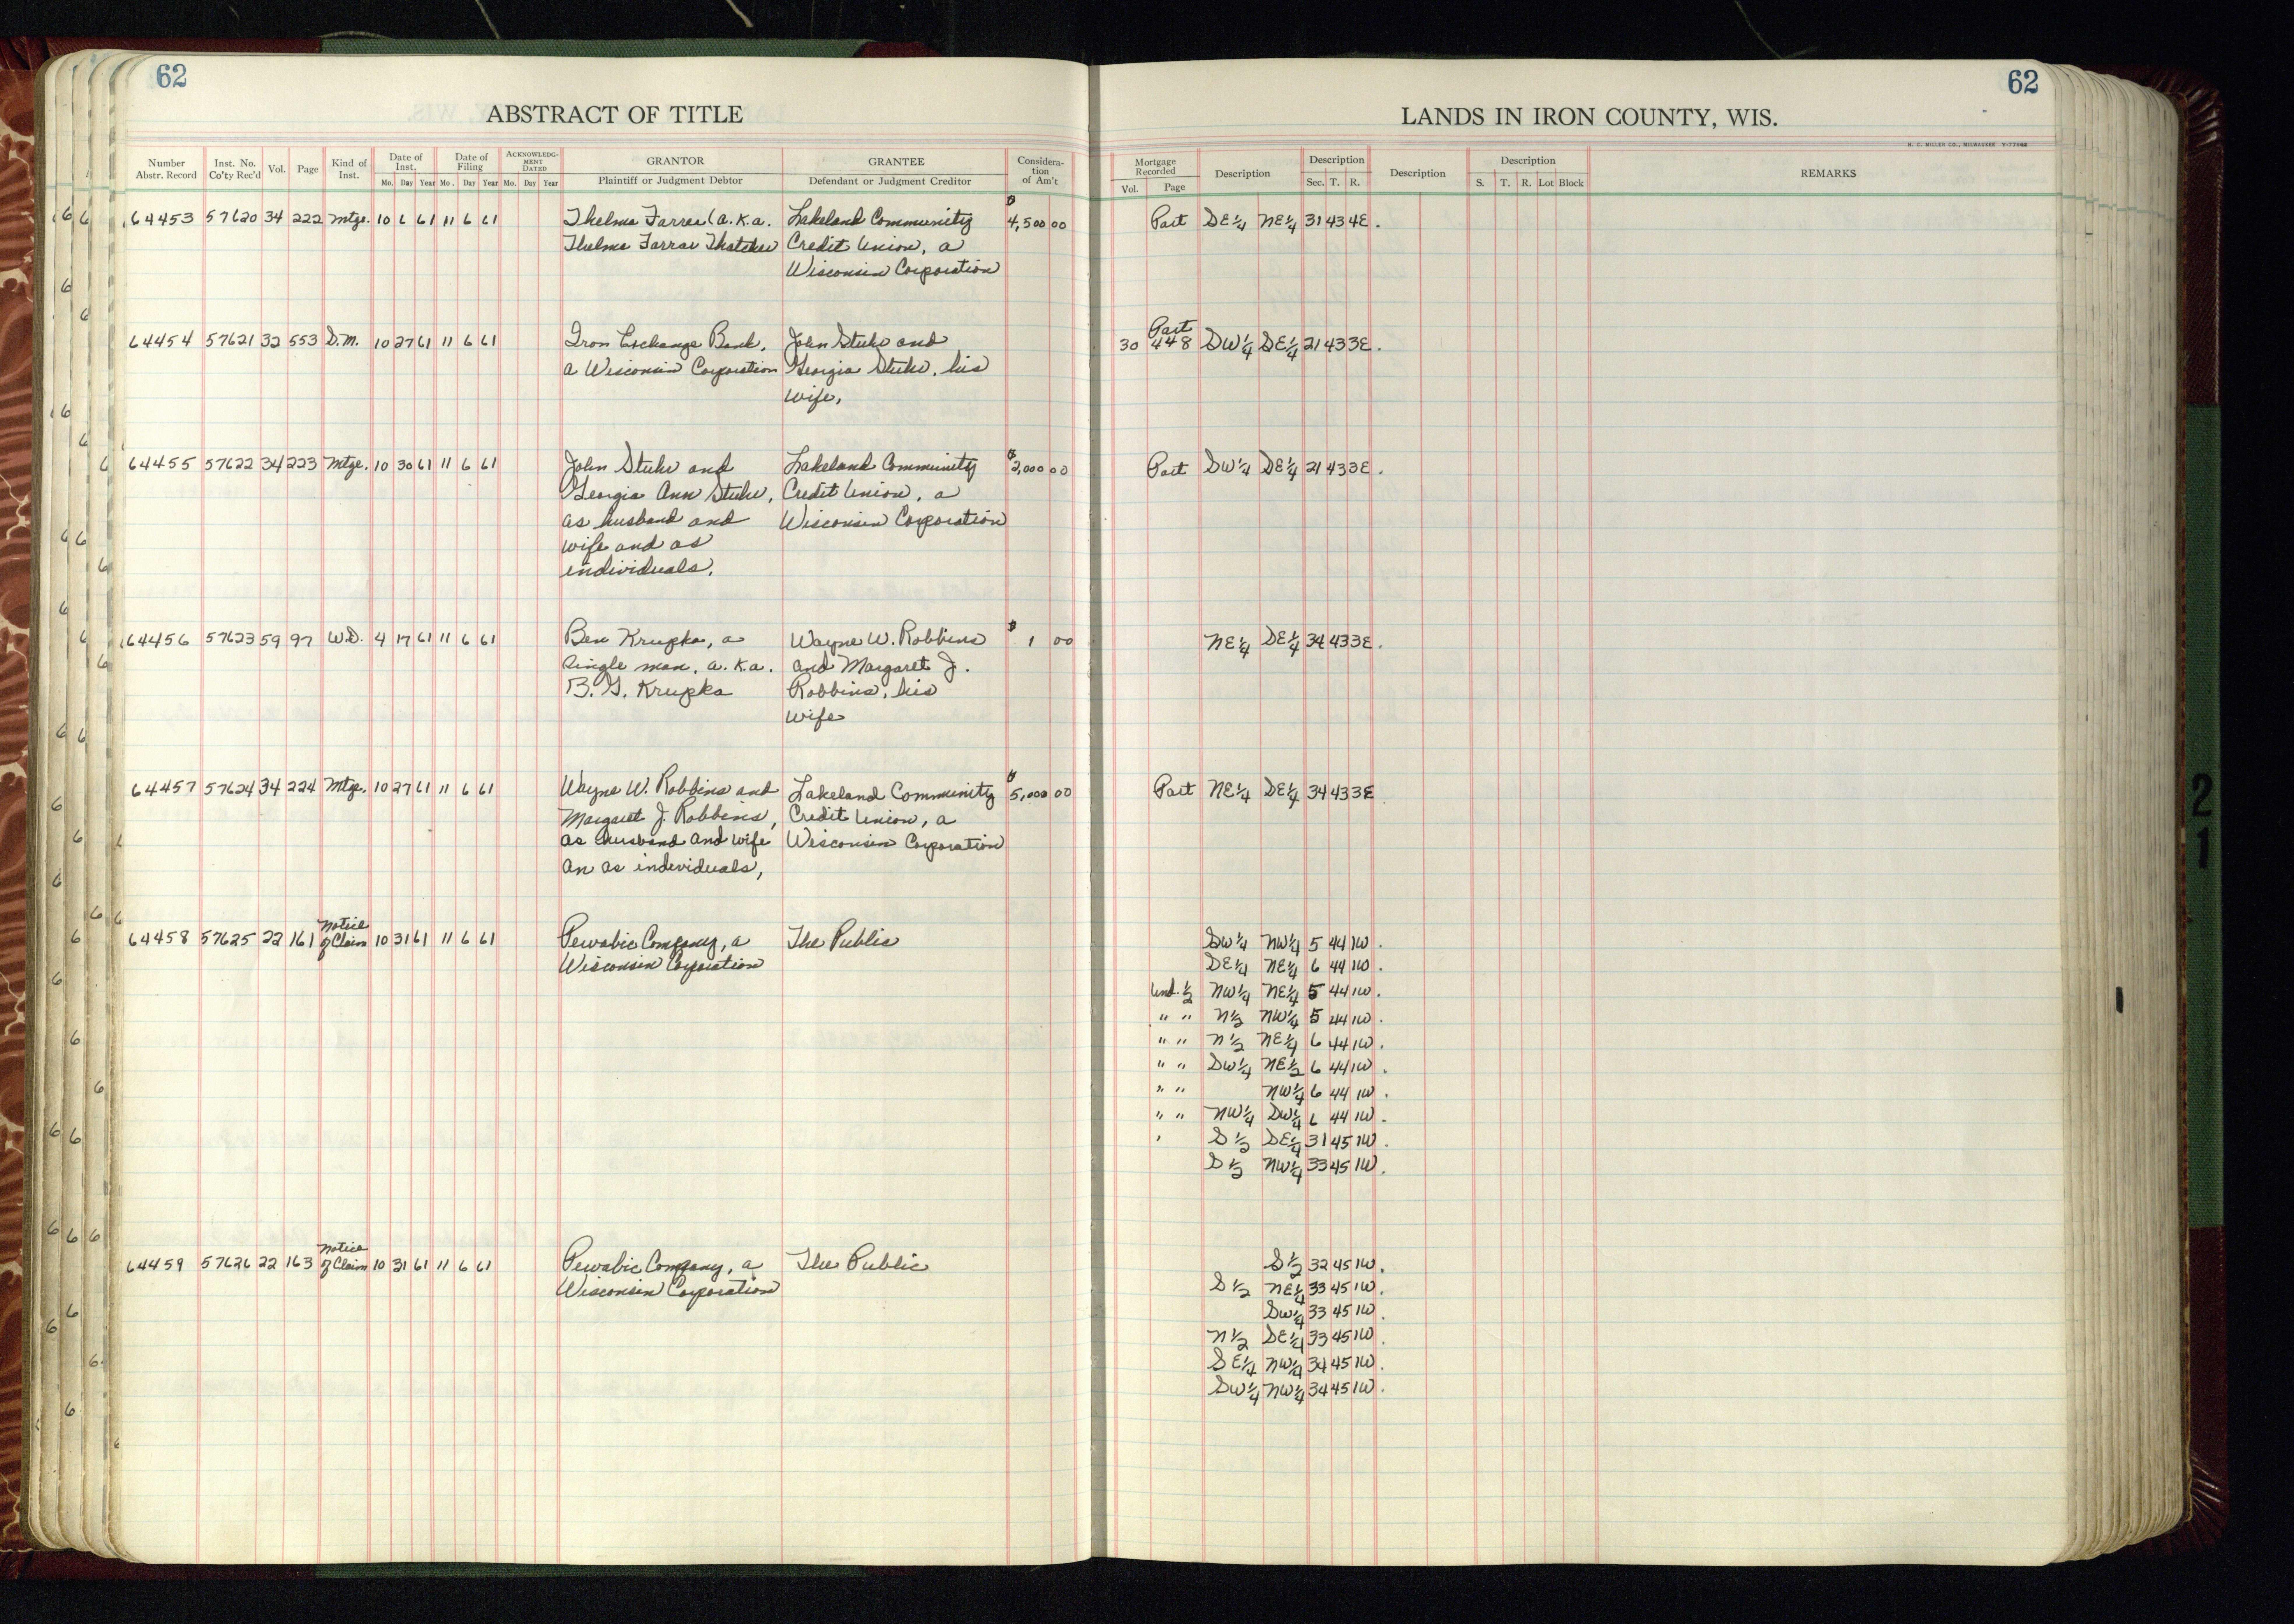 62
ABSTRACT OF TITLE
Number Abstr. Record Inst. No. Co'ty Rec'd Vol. Page Kind of Inst. Date of Inst. Mo. Day Year Date of Filing Mo. Day Year ACKNOWLEDGMENT DATED Mo. Day Year GRANTOR Plaintiff or Judgment Debtor GRANTEE Defendant or Judgment Creditor Consideration of Am't
64453 57620 34 222 Mtge. 10 6 61 11 6 61 Thelma Farrar (a.k.a. Lakeland Community $4,500 00
Thelma Farrar Thatcher Credit Union, a
Wisconsin Corporation
64454 57621 32 553 S.M. 10 27 61 11 6 61 Iron Exchange Bank, John Stuhr and
a Wisconsin Corporation Georgia Stuhr, his
wife,
64455 57622 34 223 Mtge. 10 30 61 11 6 61 John Stuhr and Lakeland Community $2,000 00
Georgia Ann Stuhr, Credit Union, a
as husband and Wisconsin Corporation
wife and as
individuals,
64456 57623 59 97 W.D. 4 17 61 11 6 61 Ben Krupka, a Wayne W. Robbins $1 00
single man, a.k.a. and Margaret J.
B. G. Krupka Robbins, his
wife
64457 57624 34 224 Mtge. 10 27 61 11 6 61 Wayne W. Robbins and Lakeland Community $5,000 00
Margaret J. Robbins, Credit Union, a
as husband and wife Wisconsin Corporation
an as individuals,
Notice
64458 57625 22 161 of Claim 10 31 61 11 6 61 Pewabic Company, a The Public
Wisconsin Corporation
Notice
64459 57626 22 163 of Claim 10 31 61 11 6 61 Pewabic Company, a The Public
Wisconsin Corporation
62
LANDS IN IRON COUNTY, WIS.
H. C. MILLER CO., MILWAUKEE
Mortgage Recorded Vol. Page Description Description Sec. T. R. Description Description S. T. R. Lot Block REMARKS
Part SE¼ NE¼ 31 43 4E.
Part
30 448 SW¼ SE¼ 21 43 3E.
Part SW¼ SE¼ 21 43 3E.
NE¼ SE¼ 34 43 3E.
Part NE¼ SE¼ 34 43 3E
SW¼ NW¼ 5 44 1W.
SE¼ NE¼ 6 44 1W.
Und. ½ NW¼ NE¼ 5 44 1W.
" " N½ NW¼ 5 44 1W.
" " N½ NE¼ 6 44 1W.
" " SW¼ NE½ 6 44 1W.
" " NW¼ 6 44 1W.
" " NW¼ SW¼ 6 44 1W.
S½ SE¼ 31 45 1W.
S½ NW¼ 33 45 1W.
S½ 32 45 1W.
S½ NE¼ 33 45 1W.
SW¼ 33 45 1W.
N½ SE¼ 33 45 1W.
SE¼ NW¼ 34 45 1W.
SW¼ NW¼ 34 45 1W.
21